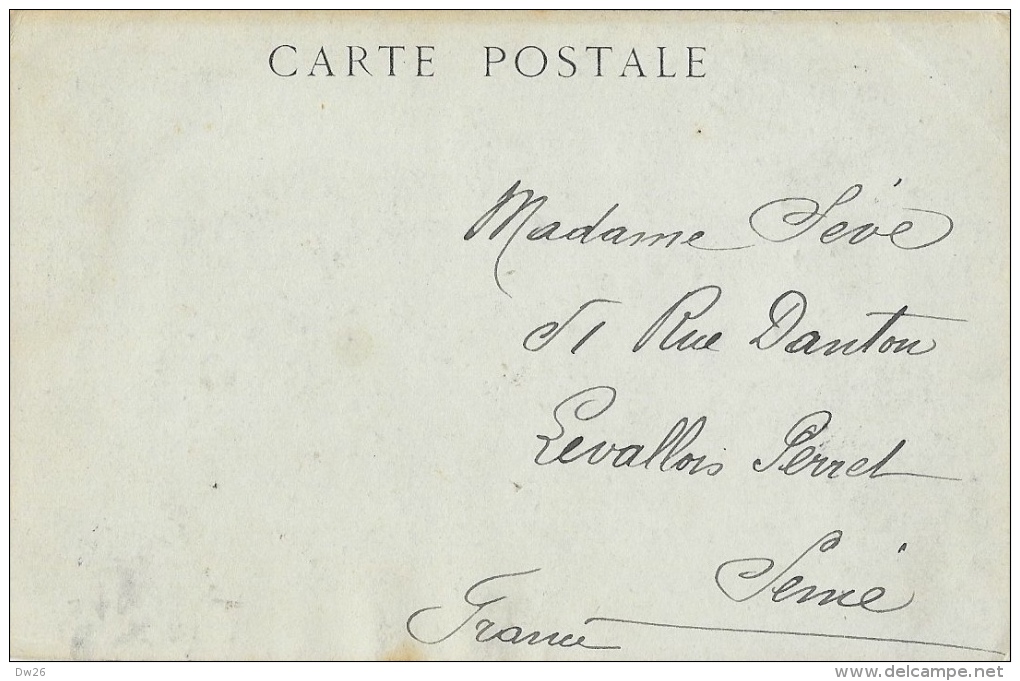 CARTE POSTALE
Madame Sève
51 Rue Danton
Levallois Perret
Seine
France
Dw26
www.delcampe.net